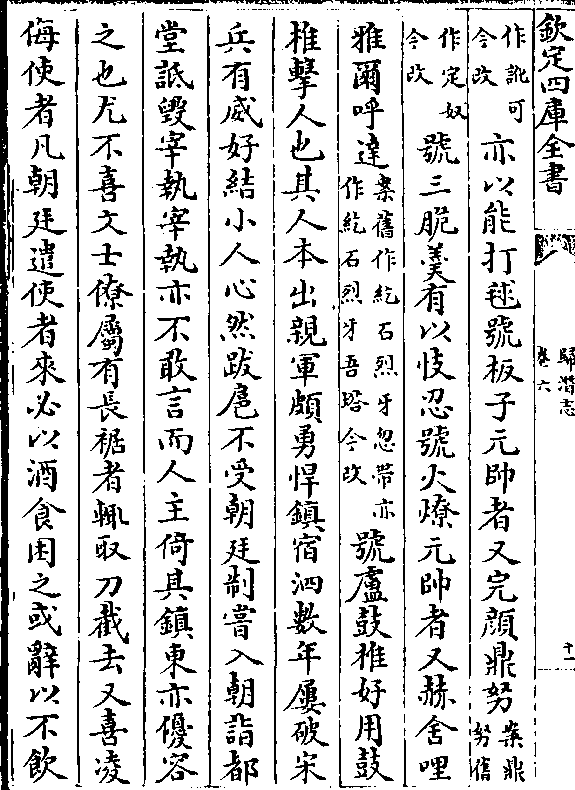 欽定四庫全書
歸潛志
卷六
十一
作訛可今改亦以能打毬號板子元帥者又完顔鼎努案鼎努舊
作定奴今改號三脆羮有以忮忍號火燎元帥者又赫舍哩
雅爾呼達案舊作紇石烈牙忽帶亦作紇石烈牙吾塔今改號盧鼓椎好用鼓
椎擊人也其人本出親軍頗勇悍鎮宿泗數年屢破宋
兵有威好結小人心然跋扈不受朝廷制嘗入朝詣都
堂詆毀宰執宰執亦不敢言而人主倚其鎮東亦優容
之也尤不喜文士僚屬有長裾者輒取刀截去又喜凌
侮使者凡朝廷遣使者來必以酒食困之或辭以不飲